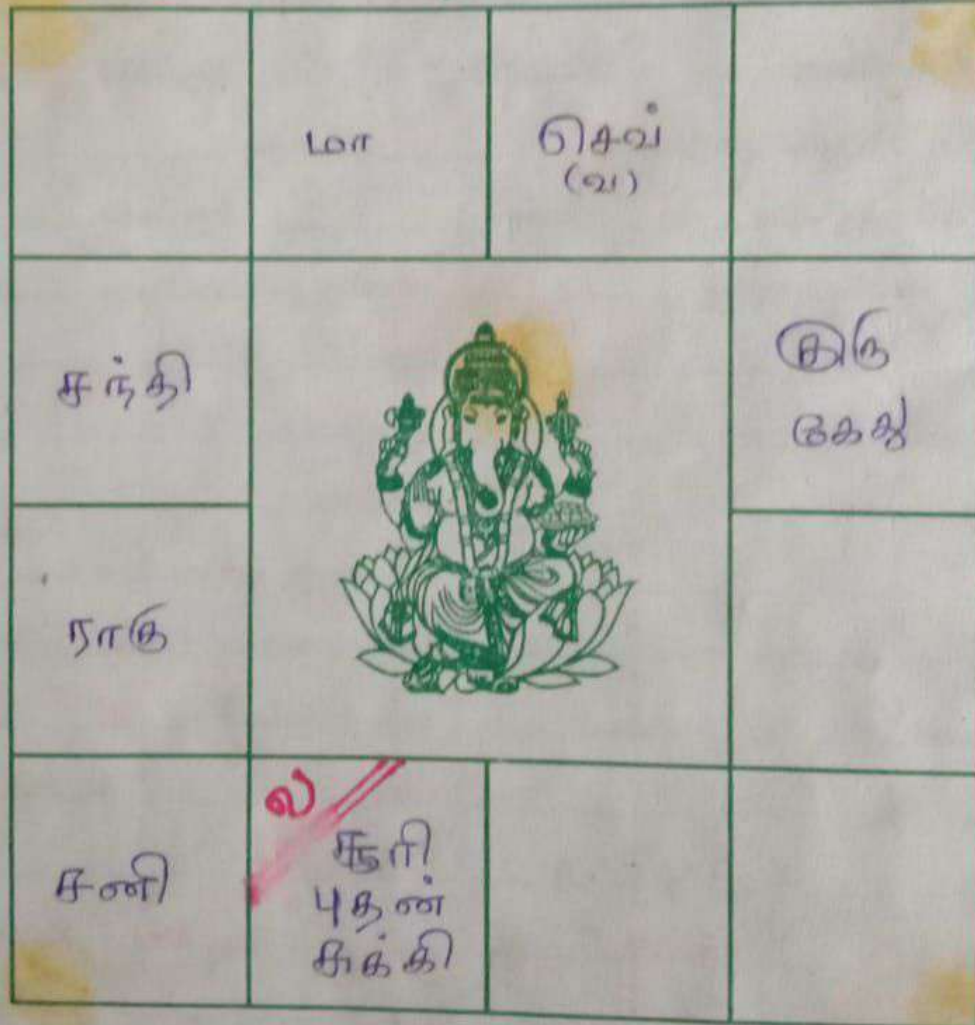 மா
செவ்
(வ)
சந்தி
குரு
கேது
ராகு
சனி
ல
சூரி
புதன்
சுக்கி